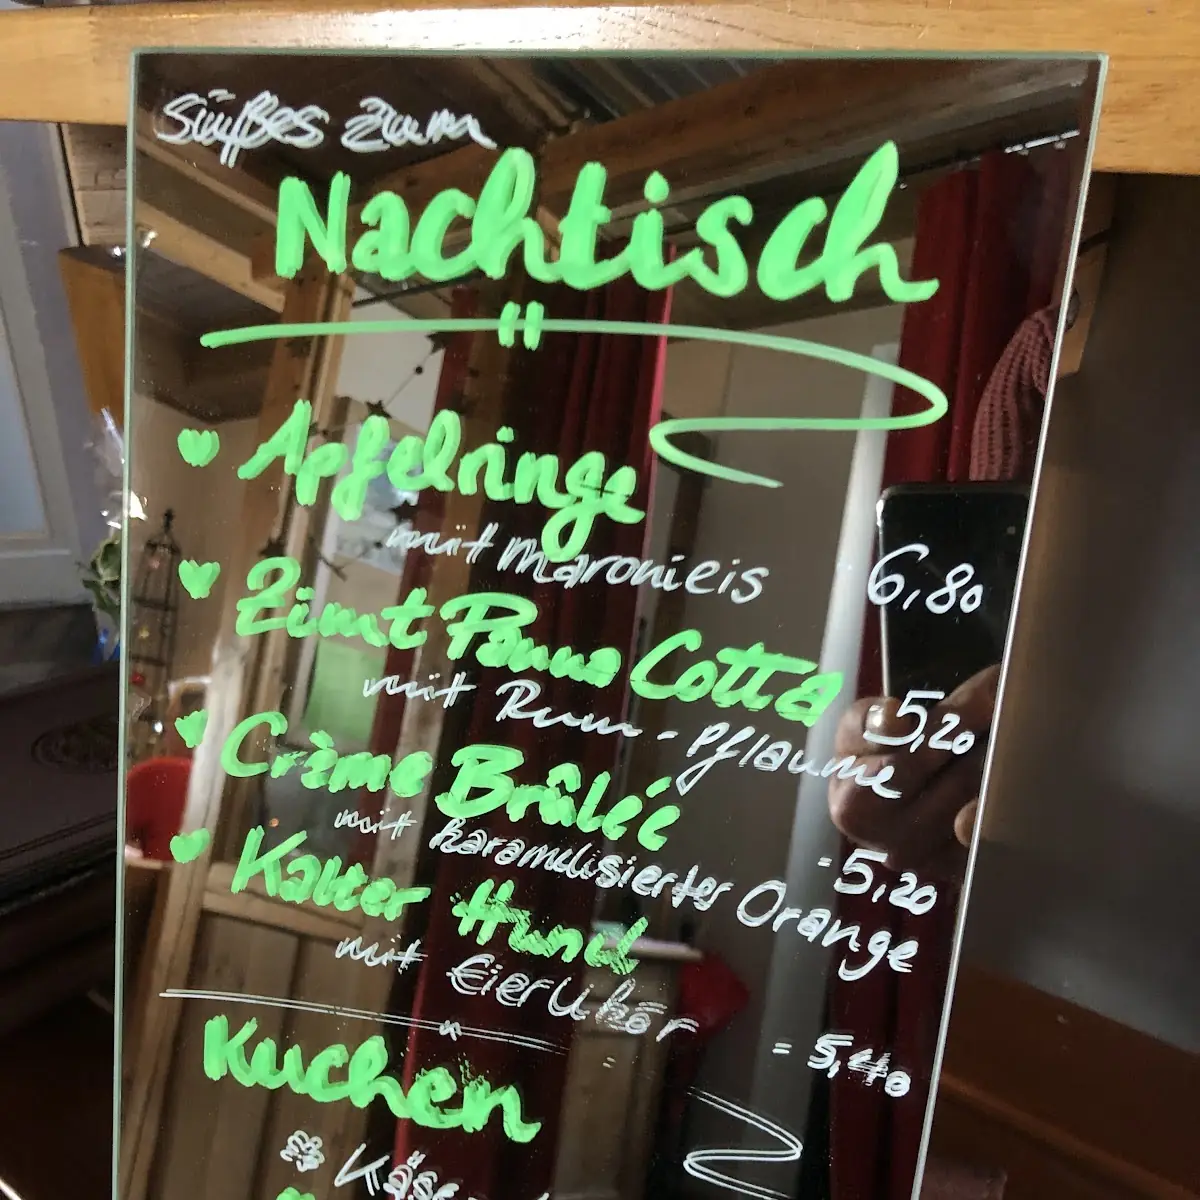 Süßes zum
Nachtisch
Apfelringe
mit Maronieis 6,80
Zimt Panna Cotta
mit Rum-Pflaume 5,20
Crème Brûlée
mit karamelisierter Orange = 5,20
Kalter Hund
mit Eierlikör = 5,40
Kuchen
Käse-